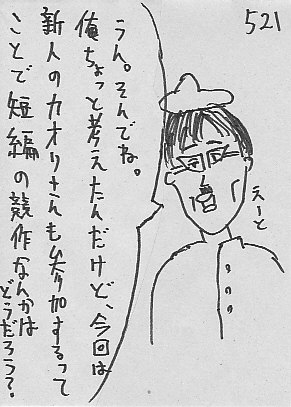 521
うん。そんでね。
俺ちょっと考えたんだけど、今回は
新人のカオリさんも参加するって
ことで短編の競作なんかは
どうだろう?
えーと